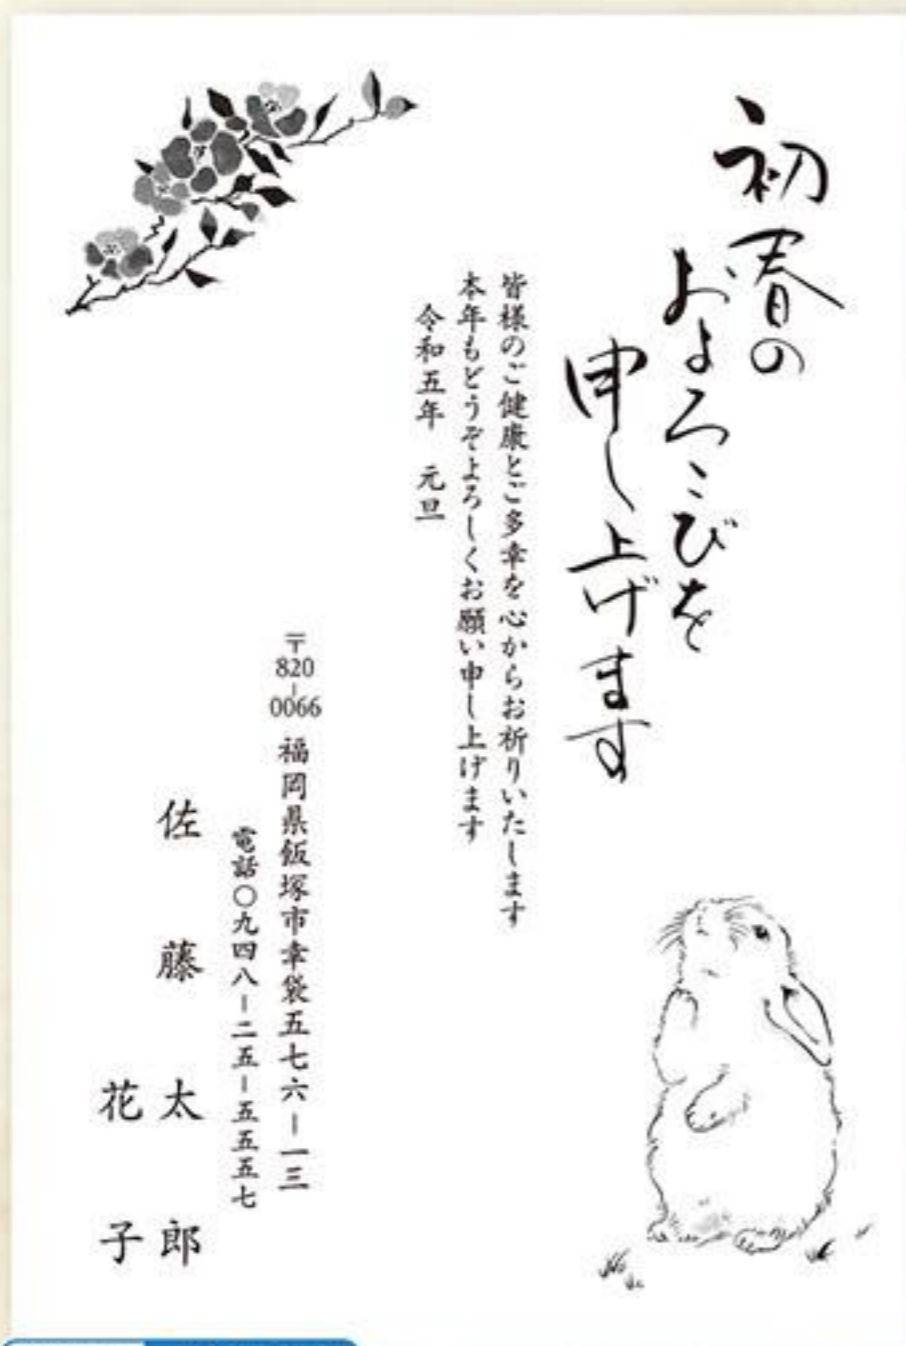 初春の
およろこびを
申し上げます
皆様のご健康とご多幸を心からお祈りいたします
本年もどうぞよろしくお願い申し上げます
令和五年　元旦
〒820-0066 福岡県飯塚市幸袋五七六－一三
電話〇九四八－二五－五五五七
佐藤太郎
花子